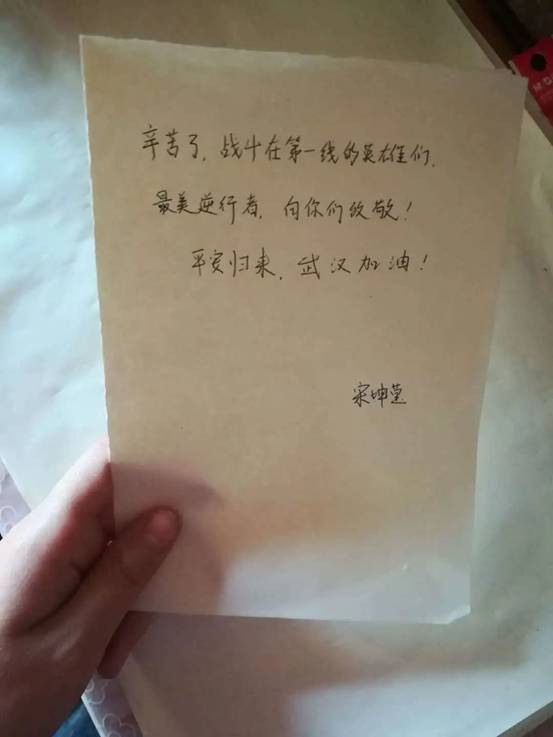 辛苦了，战斗在第一线的英雄们，
最美逆行者，向你们致敬！
平安归来，武汉加油！
宋坤莹
M&G